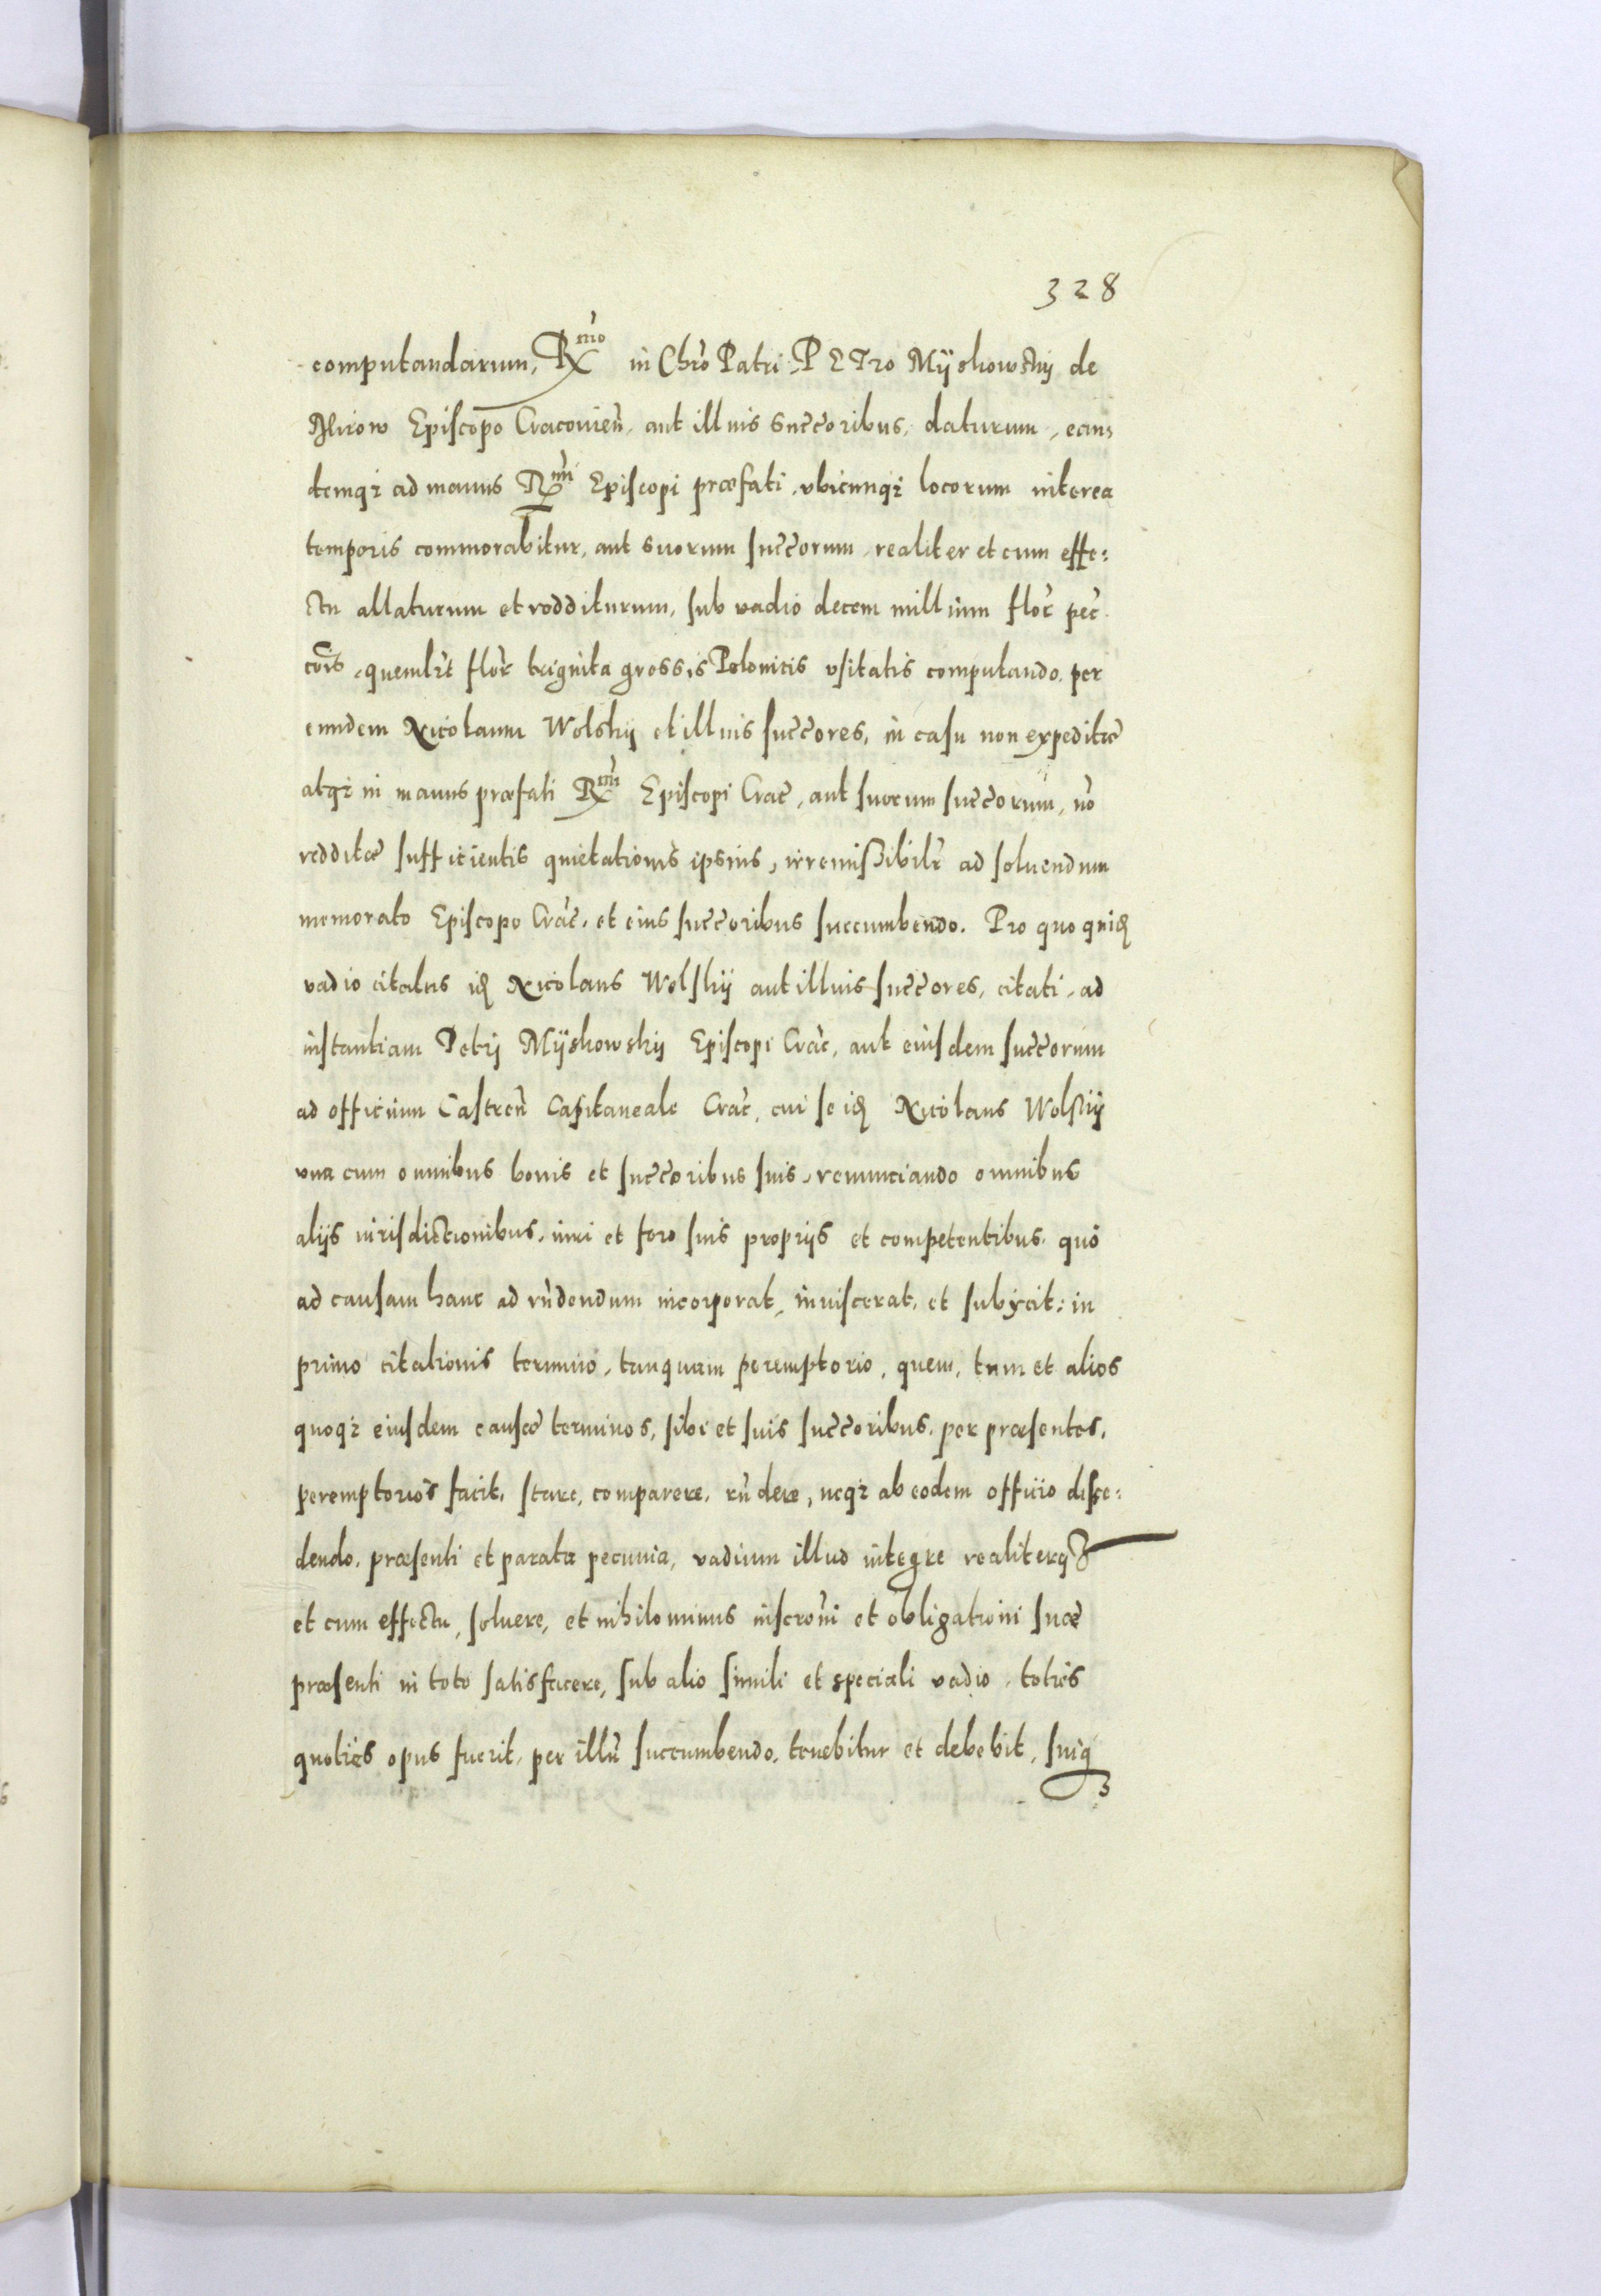 328
computandarum, Rx̃mo in Chr̃o Patri PETro Myskowsky de
Mirow Episcopo Cracovień, aut illius succoribus, daturum, ean,
demq₃ ad manus Rx̃mi Episcopi præfati, vbicunq₃ locorum interea
temporis commorabitur, aut suorum succorum, realiter et cum effe:
ctu allaturum et redditurum, sub vadio decem millium flor̃ pec̃
cõis, quemlr̃t flor̃ triginta grossis Polonicis vsitatis computando, per
eundem Nicolaum Wolsky et illius succores, in casu non expeditæ
atq₃ in manus præfati Rx̃mi Episcopi Crac̃, aut suorum succorum, nõ
redditæ sufficientis quietationis ipsius, irremissibilr̃ ad soluendum
memorato Episcopo Crac̃, et eius succoribus succumbendo. Pro quo quid̃
vadio citatus id̃ Nicolaus Wolsky aut illius succores, citati, ad
instantiam Petri Myskowsky Episcopi Crac̃, aut eiusdem succorum
ad officium Castreñ Capitaneale Crac̃, cui se id̃ Nicolaus Wolsky
vna cum omnibus bonis et succoribus suis, renunciando omnibus
alijs iurisdictionibus, iuri et foro suis proprijs et competentibus, quo
ad causam hanc ad rñdendum incorporat, inuiscerat, et subijcit: in
primo citationis termino, tanquam peremptorio, quem, tum et alios
quoq₃ eiusdem causæ terminos, sibi et suis succoribus, per præsentes,
peremptorios facit, stare, comparere, rñdere, neq₃ ab eodem officio disce:
dendo, præsenti et parata pecunia, vadium illud integre realiterq₃
et cum effectu, soluere, et nihilominus inscrõni et obligationi suæ
præsenti in toto satisfacere, sub alio simili et speciali vadio, toties
quoties opus fuerit, per illũ succumbendo, tenebitur et debebit, suiq₃